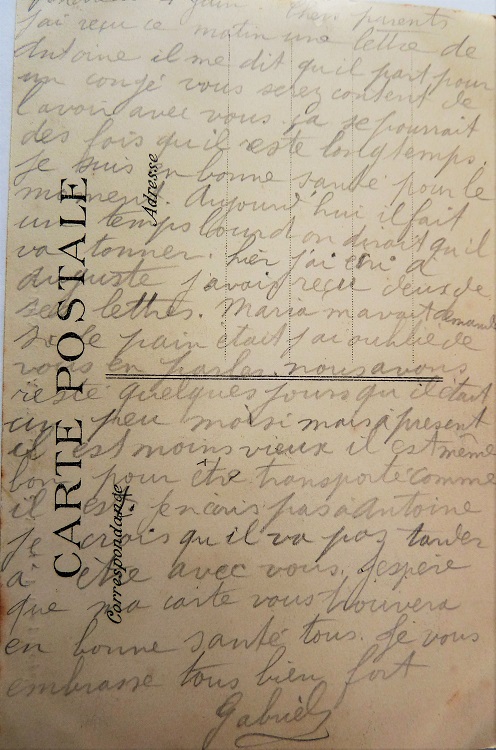 4 juin. Chers parents
j'ai reçu ce matin une lettre de
Antoine il me dit qu'il part pour
un congé vous serez content de
l'avoir avec vous. ça se pourrait
des fois qu'il este longtemps.
Je suis en bonne santé pour le
moment. Aujourd'hui il fait
un temps lourd on dirait qu'il
va tonner. hier j'ai écri a
auguste j'avais reçu deux de
ses lettres. Maria mavait demandé
si le pain était j'ai oublié de
vous en parler. nous avons
resté quelques jours qu'il était
un peu moisi mais a present
il est moins vieux il est même
bon pour être transporté comme
il est. j'en cris pas a Antoine
Je crois qu'il va pas tarder
a être avec vous. j'espère
que ma carte vous trouvera
en bonne santé tous. Je vous
embrasse tous bien fort
Gabriel
CARTE POSTALE
Correspondance
Adresse